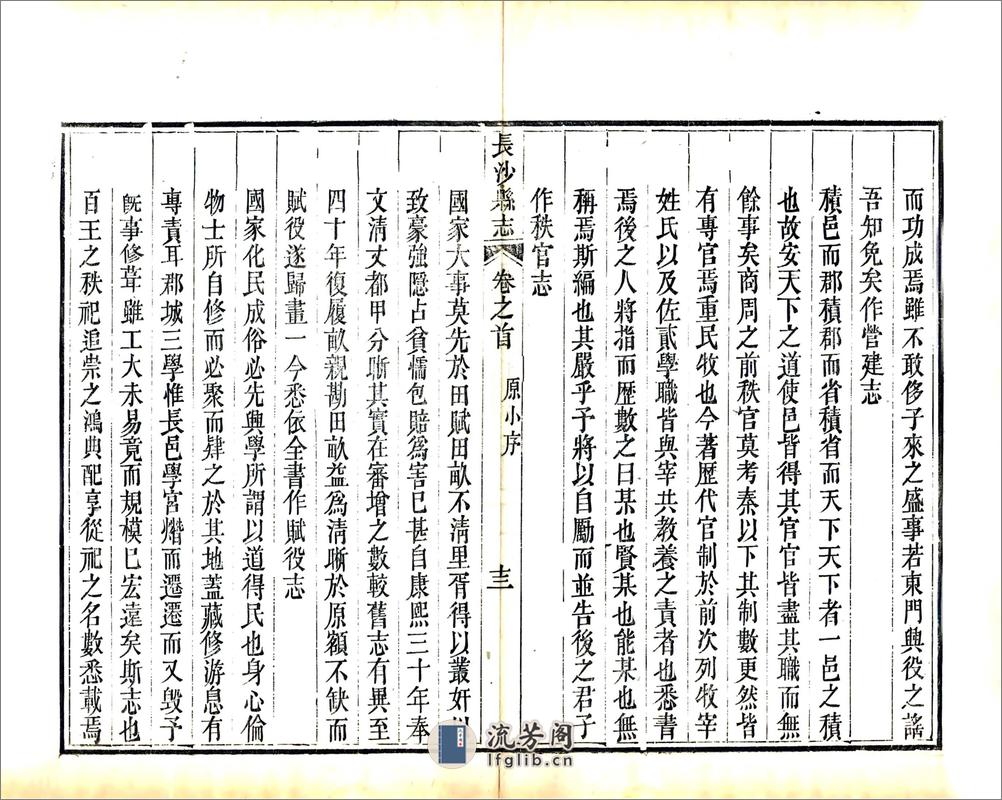 而功成焉雖不敢侈子來之盛事若東門興役之謠
吾知免矣作營建志
積邑而郡積郡而省積省而天下天下者一邑之積
也故安天下之道使邑皆得其官官皆盡其職而無
餘事矣商周之前秩官莫考秦以下其制數更然皆
有專官焉重民牧也今著歷代官制於前次列牧宰
姓氏以及佐貳學職皆與宰共教養之責者也悉書
焉後之人將指而歷數之曰某也賢某也能某也無
稱焉斯編也其嚴乎予將以自勵而並告後之君子
作秩官志
長沙縣志 卷之首 原小序
國家大事莫先於田賦田畝不淸里胥得以叢奸以
致豪強隱占貧懦包賠爲害已甚自康熙三十年奉
文淸丈都甲分晰其實在審增之數較舊志有異至
四十年復履畝親勘田畝益爲淸晰於原額不缺而
賦役遂歸畫一今悉依全書作賦役志
國家化民成俗必先興學所謂以道得民也身心倫
物士所自修而必聚而肆之於其地蓋藏修游息有
專責耳郡城三學惟長邑學宮燬而遷遷而又毀予
旣事修葺雖工大未易竟而規模已宏遠矣斯志也
百王之秩祀追崇之鴻典配享從祀之名數悉載焉
流芳阁
lfglib.cn